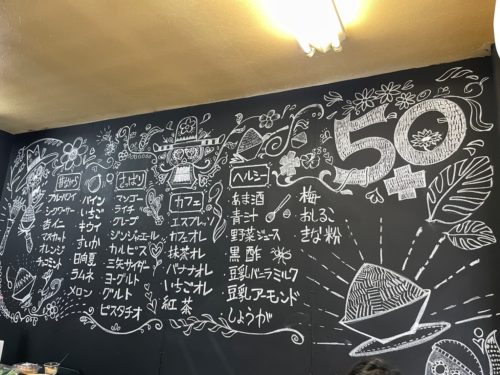 昔ながら
ブルーハワイ
杏仁
マスカット
オレンジ
パイン
いちご
キウイ
すいか
日向夏
ラムネ
メロン
さっぱり
マンゴー
ライチ
グレープ
ジンジャエール
カルピス
三矢サイダー
ヨーグルト
ピスタチオ
カフェ
エスプレッソ
カフェオレ
抹茶オレ
バナナオレ
いちごオレ
紅茶
ヘルシー
あま酒
青汁
野菜ジュース
黒酢
豆乳
豆乳アーモンド
しょうが
梅
おしるこ
きな粉
50+